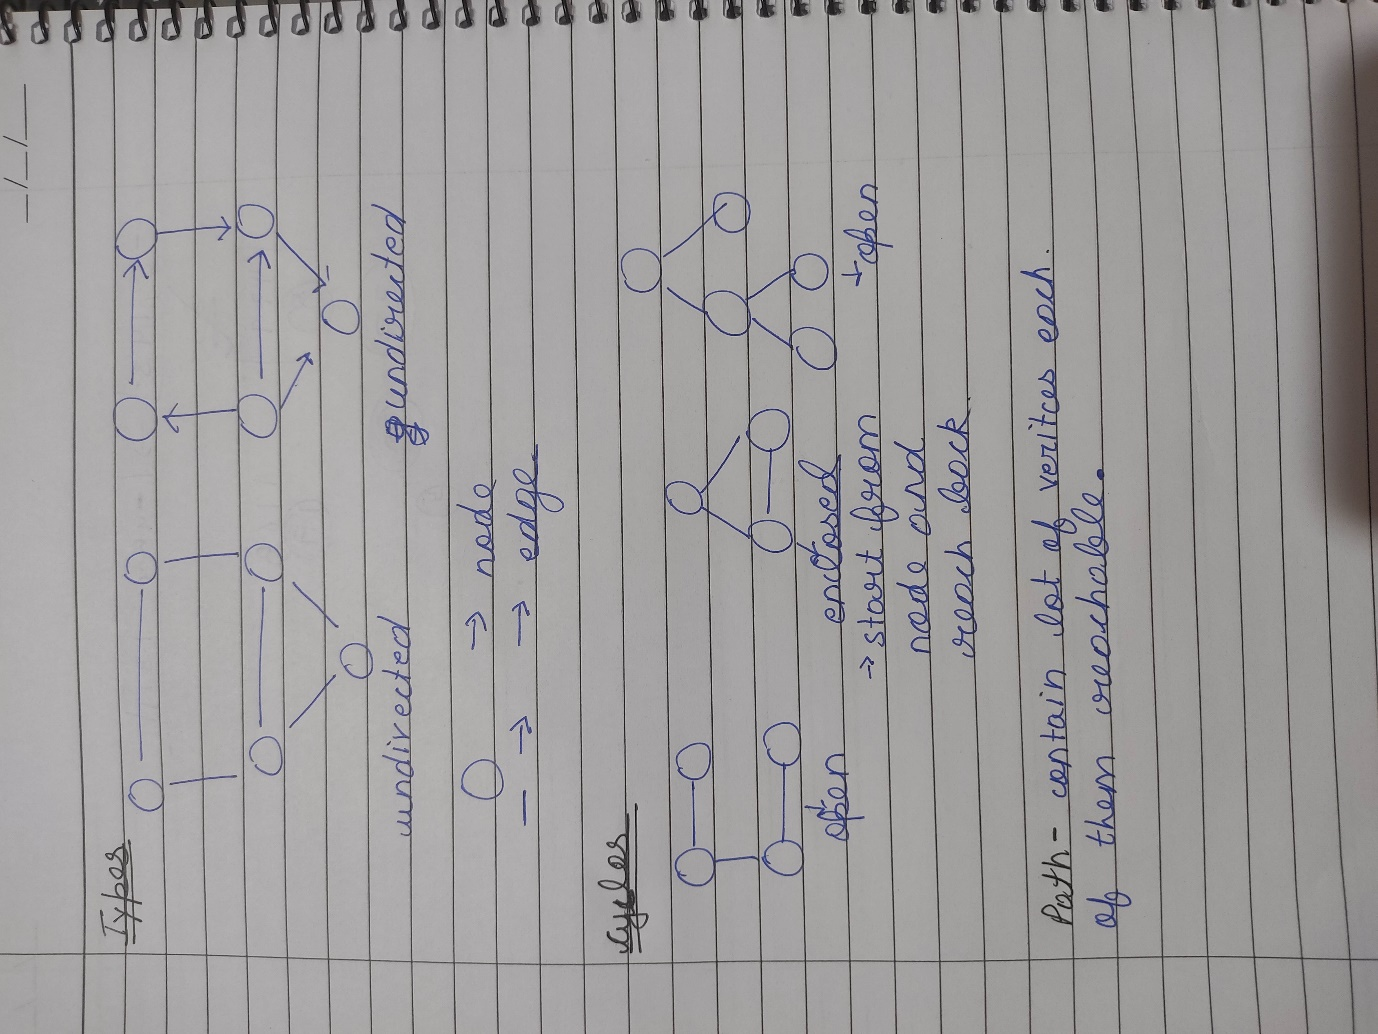 _/_/_
Types
undirected
undirected
→ node
— → → edge
Cycles
open
enclosed
→ open
→ start from
node and
reach back
Path - contain lot of veritces each
of them reachable.